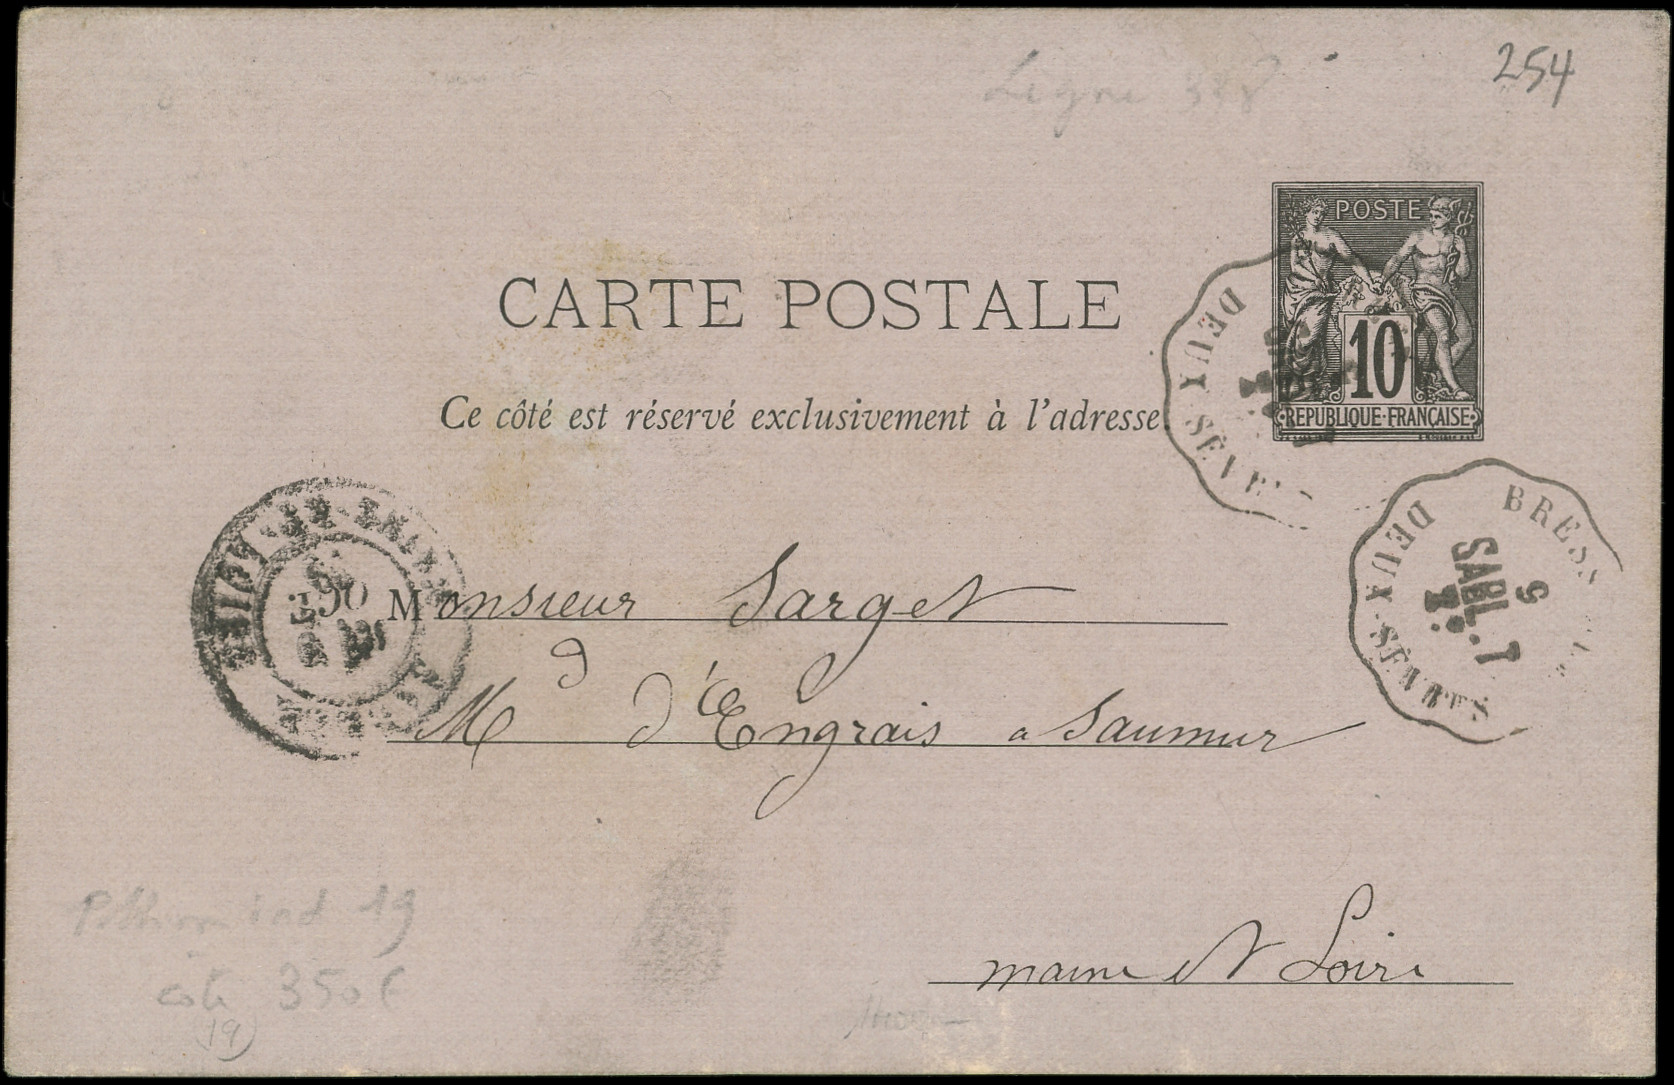 254
Ligne 338
POSTE
10
REPUBLIQUE FRANÇAISE
CARTE POSTALE
DEUX SEVRE
Ce côté est réservé exclusivement à l'adresse.
BRESS
9
SABL. 1
DEUX-SÈVRES
90
Monsieur Sarget
Md d'Engrais a Saumur
Maine et Loire
ind 19
cote 350€
(19)